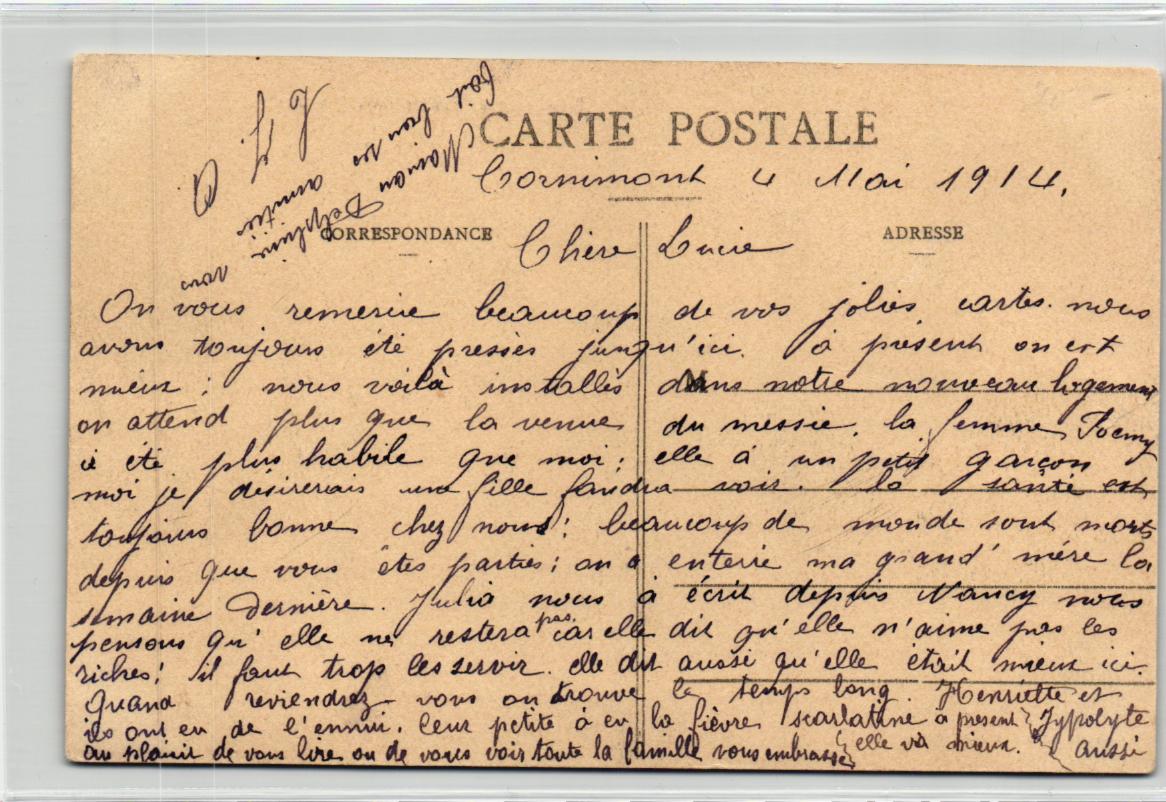 CARTE POSTALE
Cornimont 4 Mai 1914.
CORRESPONDANCE
ADRESSE
Chère Lucie
On vous remercie beaucoup de vos jolies cartes. nous
avons toujours été pressés jusqu'ici. à présent on est
mieux ; nous voilà installés dans notre nouveau logement
on attend plus que la venue du messie. la femme
à été plus habile que moi ; elle à un petit garçon
moi je désirerais une fille faudra voir. la santé est
toujours bonne chez nous ; beaucoup de monde sont morts
depuis que vous êtes parties ; on a enterré ma grand' mère la
semaine Dernière. Julia nous à écrit depuis Nancy nous
pensons qu'elle ne restera pas car elle dit qu'elle n'aime pas les
riches ! il faut trop les servir. elle dit aussi qu'elle était mieux ici.
Quand reviendrez vous on trouve le temps long. Henriette et
ils ont eu de l'ennui. leur petite à eu la fièvre scarlatine à présent Hyppolyte
au plaisir de vous lire ou de vous voir toute la famille vous embrasse elle va mieux. aussi
bon
amitiés
Delphine